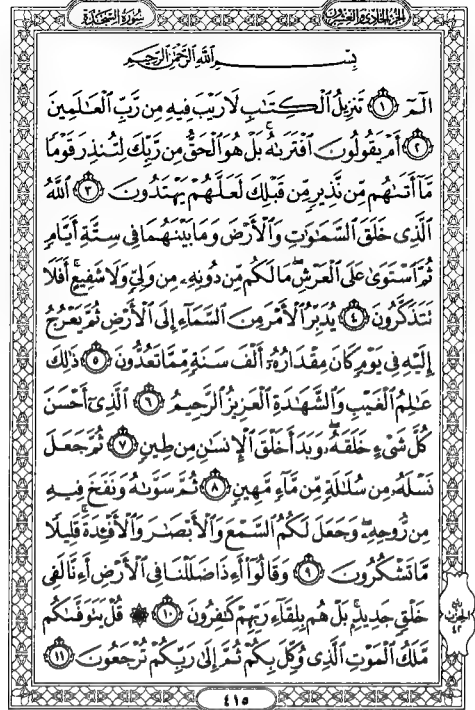 سُورَةُ السَّجْدَةِ الجُزْءُ الحَادِي وَالعِشْرُونَ
بِسْمِ اللَّهِ الرَّحْمَٰنِ الرَّحِيمِ
الٓمٓ ١ تَنزِيلُ ٱلْكِتَٰبِ لَا رَيْبَ فِيهِ مِن رَّبِّ ٱلْعَٰلَمِينَ
٢ أَمْ يَقُولُونَ ٱفْتَرَىٰهُ ۚ بَلْ هُوَ ٱلْحَقُّ مِن رَّبِّكَ لِتُنذِرَ قَوْمًا
مَّآ أَتَىٰهُم مِّن نَّذِيرٍ مِّن قَبْلِكَ لَعَلَّهُمْ يَهْتَدُونَ ٣ ٱللَّهُ
ٱلَّذِى خَلَقَ ٱلسَّمَٰوَٰتِ وَٱلْأَرْضَ وَمَا بَيْنَهُمَا فِى سِتَّةِ أَيَّامٍ
ثُمَّ ٱسْتَوَىٰ عَلَى ٱلْعَرْشِ ۖ مَا لَكُم مِّن دُونِهِۦ مِن وَلِىٍّ وَلَا شَفِيعٍ ۚ أَفَلَا
تَتَذَكَّرُونَ ٤ يُدَبِّرُ ٱلْأَمْرَ مِنَ ٱلسَّمَآءِ إِلَى ٱلْأَرْضِ ثُمَّ يَعْرُجُ
إِلَيْهِ فِى يَوْمٍ كَانَ مِقْدَارُهُۥٓ أَلْفَ سَنَةٍ مِّمَّا تَعُدُّونَ ٥ ذَٰلِكَ
عَٰلِمُ ٱلْغَيْبِ وَٱلشَّهَٰدَةِ ٱلْعَزِيزُ ٱلرَّحِيمُ ٦ ٱلَّذِىٓ أَحْسَنَ
كُلَّ شَىْءٍ خَلَقَهُۥ ۖ وَبَدَأَ خَلْقَ ٱلْإِنسَٰنِ مِن طِينٍ ٧ ثُمَّ جَعَلَ
نَسْلَهُۥ مِن سُلَٰلَةٍ مِّن مَّآءٍ مَّهِينٍ ٨ ثُمَّ سَوَّىٰهُ وَنَفَخَ فِيهِ
مِن رُّوحِهِۦ ۖ وَجَعَلَ لَكُمُ ٱلسَّمْعَ وَٱلْأَبْصَٰرَ وَٱلْأَفْـِٔدَةَ ۚ قَلِيلًا
مَّا تَشْكُرُونَ ٩ وَقَالُوٓا۟ أَءِذَا ضَلَلْنَا فِى ٱلْأَرْضِ أَءِنَّا لَفِى
خَلْقٍ جَدِيدٍۭ ۚ بَلْ هُم بِلِقَآءِ رَبِّهِمْ كَٰفِرُونَ ١٠ ۞ قُلْ يَتَوَفَّىٰكُم
مَّلَكُ ٱلْمَوْتِ ٱلَّذِى وُكِّلَ بِكُمْ ثُمَّ إِلَىٰ رَبِّكُمْ تُرْجَعُونَ ١١
ربع
الحزب
٤٢
٤١٥